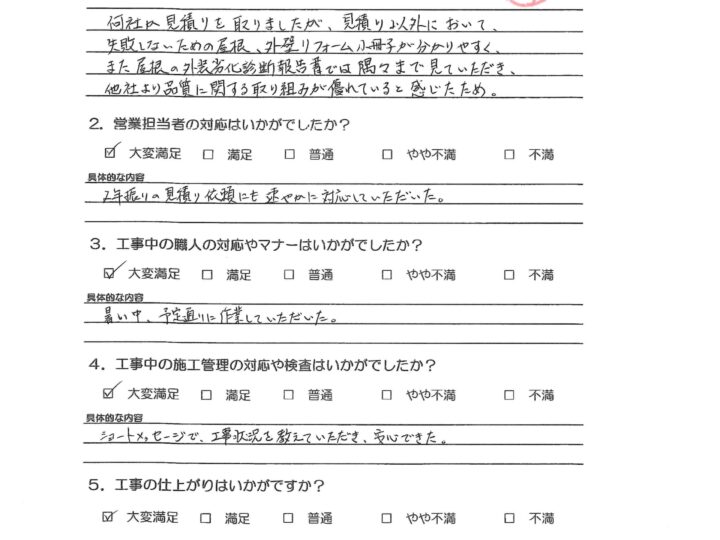 何社か見積りを取りましたが、見積り以外において、
失敗しないための屋根、外壁リフォーム小冊子が分かりやすく、
また屋根の外装劣化診断報告書では隅々まで見ていただき、
他社より品質に関する取り組みが優れていると感じたため。
2．営業担当者の対応はいかがでしたか？
☑ 大変満足 □ 満足 □ 普通 □ やや不満 □ 不満
具体的な内容
2年振りの見積り依頼にも速やかに対応していただいた。
3．工事中の職人の対応やマナーはいかがでしたか？
☑ 大変満足 □ 満足 □ 普通 □ やや不満 □ 不満
具体的な内容
暑い中、予定通りに作業していただいた。
4．工事中の施工管理の対応や検査はいかがでしたか？
☑ 大変満足 □ 満足 □ 普通 □ やや不満 □ 不満
具体的な内容
ショートメッセージで、工事状況を教えていただき、安心できた。
5．工事の仕上がりはいかがですか？
☑ 大変満足 □ 満足 □ 普通 □ やや不満 □ 不満